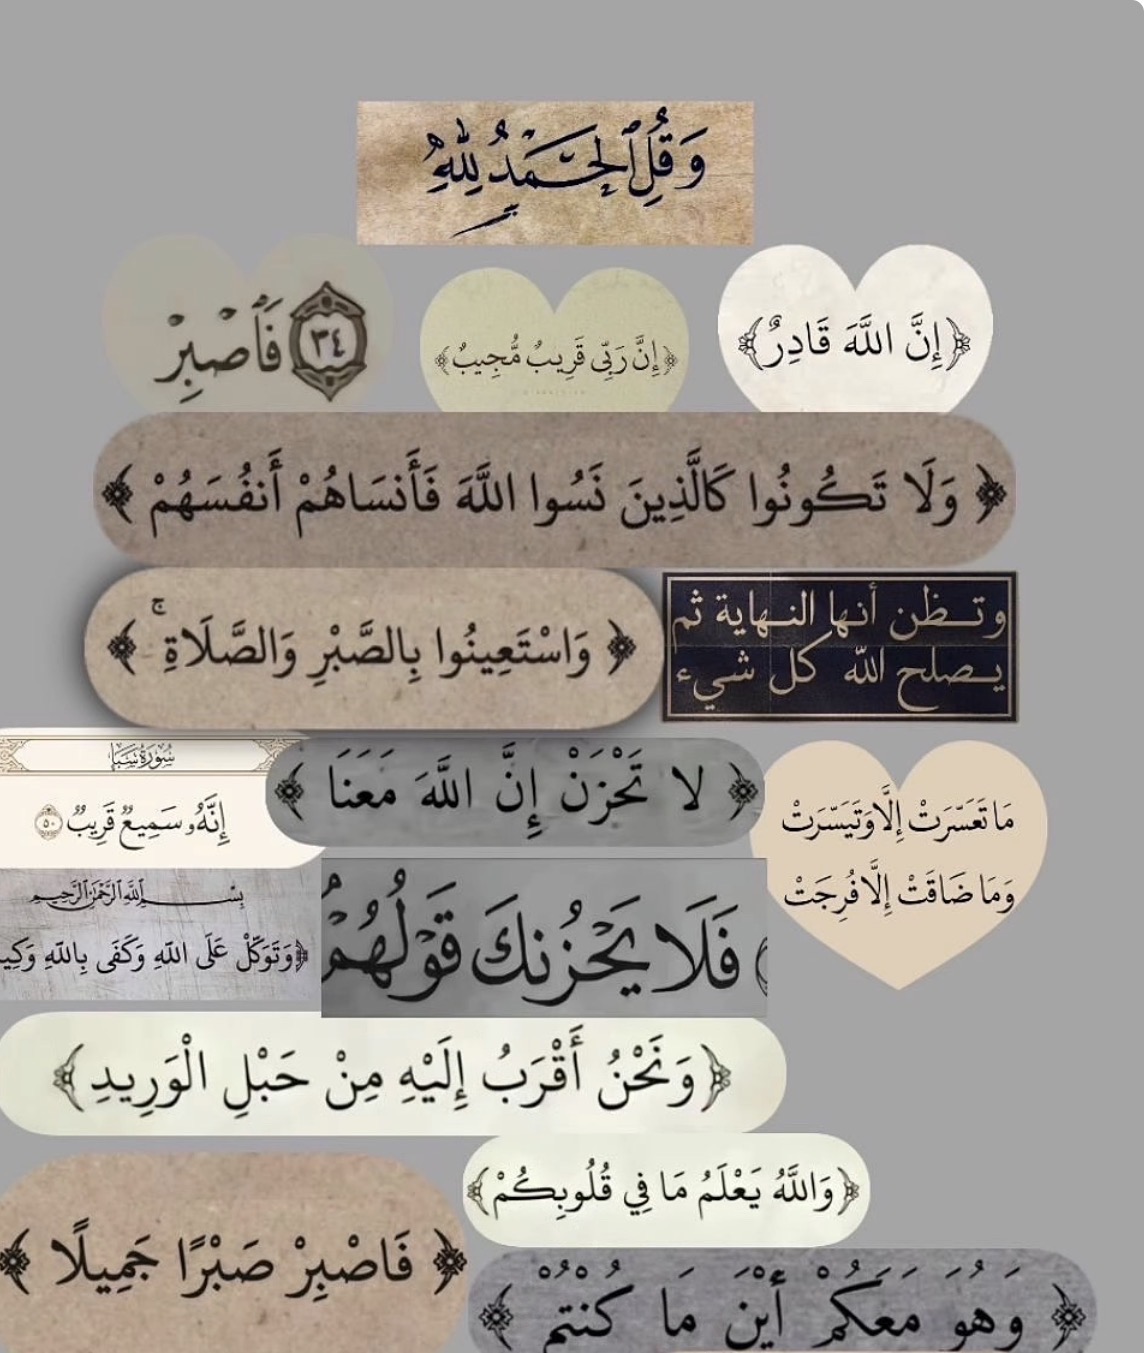 وَقُلِ ٱلْحَمْدُ لِلَّهِ
﴿إِنَّ اللَّهَ قَادِرٌ﴾
﴿إِنَّ رَبِّي قَرِيبٌ مُّجِيبٌ﴾
٣٤ فَٱصْبِرْ
﴿ وَلَا تَكُونُوا كَالَّذِينَ نَسُوا اللَّهَ فَأَنسَاهُمْ أَنفُسَهُمْ ﴾
وتظن أنها النهاية ثم
يصلح الله كل شيء
﴿ وَاسْتَعِينُوا بِالصَّبْرِ وَالصَّلَاةِ ۚ ﴾
﴿ لا تَحْزَنْ إِنَّ اللَّهَ مَعَنَا ﴾
سُورَةُ سَبَإٍ
إِنَّهُۥ سَمِيعٌ قَرِيبٌ ٥٠
مَا تَعَسَّرَتْ إِلَّا وَتَيَسَّرَتْ
وَمَا ضَاقَتْ إِلَّا فُرِجَتْ
بِسْمِ ٱللَّهِ ٱلرَّحْمَٰنِ ٱلرَّحِيمِ
﴿وَتَوَكَّلْ عَلَى اللَّهِ وَكَفَى بِاللَّهِ وَكِي
فَلَا يَحْزُنكَ قَوْلُهُمْ
﴿وَنَحْنُ أَقْرَبُ إِلَيْهِ مِنْ حَبْلِ الْوَرِيدِ﴾
﴿وَاللَّهُ يَعْلَمُ مَا فِي قُلُوبِكُمْ﴾
﴿ فَاصْبِرْ صَبْرًا جَمِيلًا ﴾
﴿ وَهُوَ مَعَكُمْ أَيْنَ مَا كُنْتُمْ ﴾